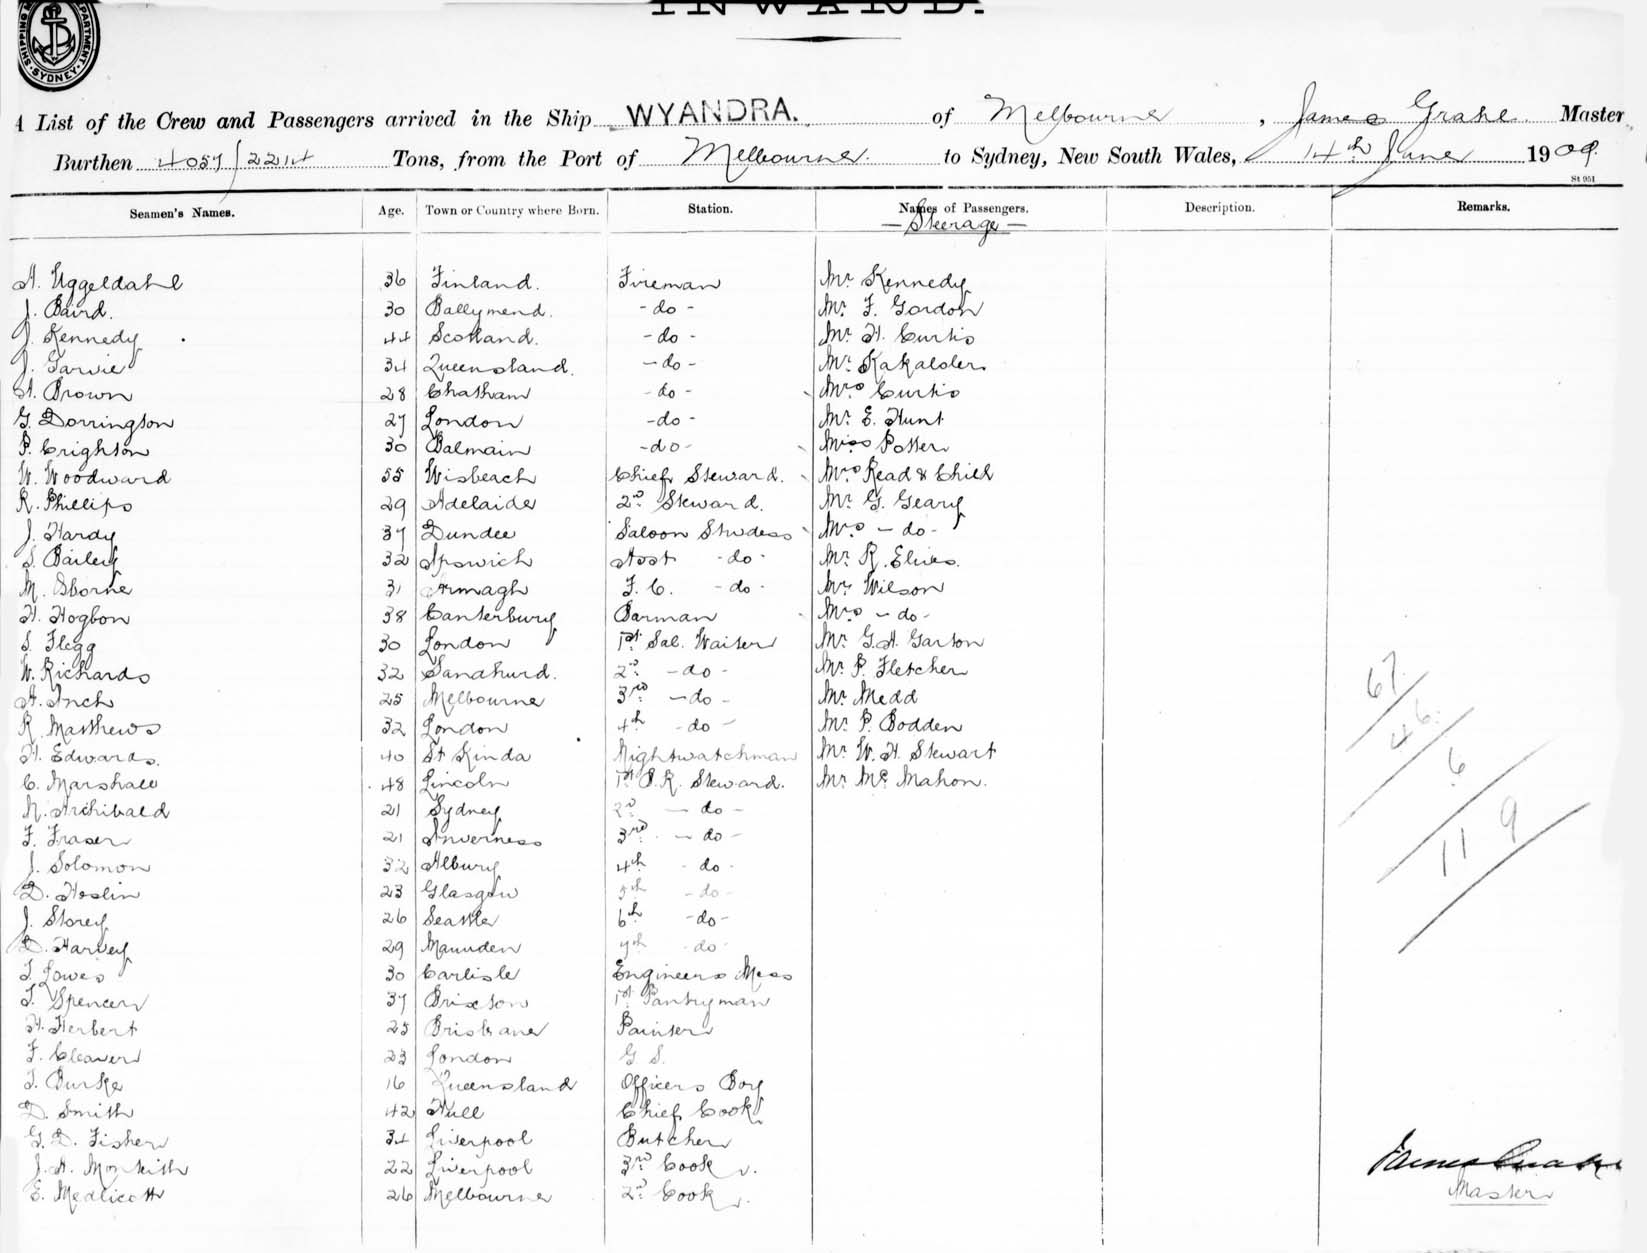 INWARD.
SHIPPING M DEPARTMENT. SYDNEY.
A List of the Crew and Passengers arrived in the Ship WYANDRA. of Melbourne, James Grahl Master
Burthen 4057/2214 Tons, from the Port of Melbourne. to Sydney, New South Wales, 14th June 1909.
St 951
Seamen's Names. Age. Town or Country where Born. Station. Names of Passengers. Description. Remarks.
- Steerage -
A. Uggeldahl 36 Finland. Fireman Mr Kennedy
J. Baird. 30 Ballymend. - do - Mr. F. Gordon
J. Kennedy 44 Scotland. - do - Mr. H. Curtis
J. Garvie 34 Queensland. - do - Mr. Kakalder
A. Brown 28 Chatham - do - Mrs Curtis
G. Dorrington 27 London - do - Mr. E. Hunt
P. Crighton 30 Balmain - do - Miss Potter
W. Woodward 55 Wisbeach Chief Steward. Mrs Read & Child
R. Phillips 29 Adelaide 2nd Steward. Mr. G. Geary
J. Hardy 37 Dundee Saloon Stwdess Mrs - do -
S. Bailey 32 Ipswich Asst - do - Mr. R.
M. Sborne 31 Armagh F. C. - do - Mr. Wilson
H. Hogbon 38 Canterbury Barman Mrs - do -
S. Flegg 30 London 1st Sal. Waiter Mr. G.H. Garton
W. Richards 32 Sandhurd. 2nd - do - Mr. P. Fletcher
A. Inch 25 Melbourne 3rd - do - Mr. Medd
R. Matthews 32 London 4th - do - Mr. P. Bodden
H. Edwards. 40 St Kinda Nightwatchman Mr. W. H. Stewart
C. Marshall 48 Lincoln 1st B.R. Steward. Mr. Mc Mahon.
N. Archibald 21 Sydney 2nd - do -
F. Fraser 21 Inverness 3rd - do -
J. Solomon 32 Albury 4th - do -
D. Hoslin 23 Glasgow 5th - do -
J. Storey 26 Seattle 6th - do -
D. Harvey 29 Maunden 7th - do -
T. Lowes 30 Carlisle Engineers Mess
T. Spencer 37 Brixton 1st Pantryman
H. Herbert 25 Brisbane Painter
F. Cleaver 23 London G. S.
T. Burke 16 Queensland Officers Boy
D. Smith 42 Hull Chief Cook
G. D. Fisher 34 Liverpool Butcher
J. A. 22 Liverpool 3rd Cook.
E. Medlicott 26 Melbourne 2nd Cook.
67.
46.
6
119
James Grahl
Master